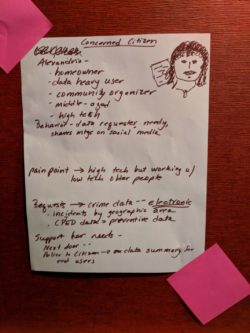 Concerned Citizen
Alexandria -
- homeowner
- data heavy user
- community organizer
- middle-aged
- high tech
Behavior - data requester, nerdy,
shares mtgs on social media
pain point → high tech but working w/
low tech older people
Requests → crime data -- electronic
- incidents by geographic area
- CPED data = preventive data
Support her needs -
Next door --
Police to Citizen → data summary for
end users